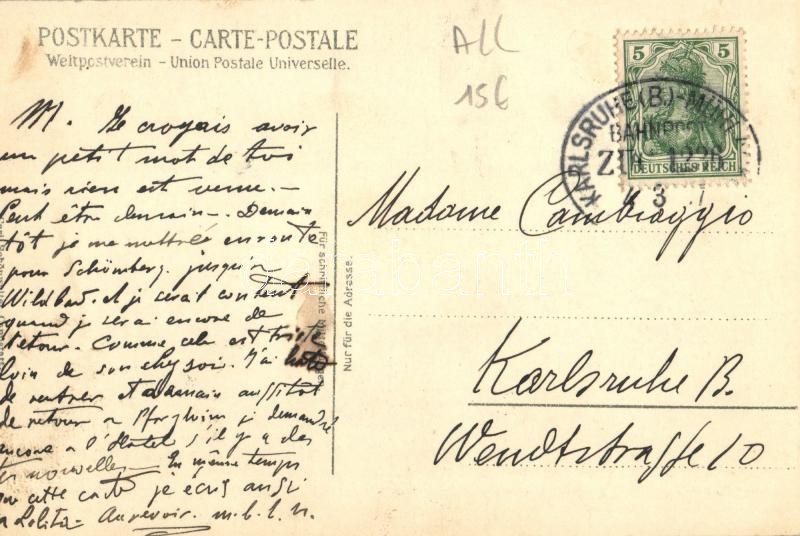 POSTKARTE – CARTE-POSTALE
Weltpostverein – Union Postale Universelle.
All
15€
5 5
DEUTSCHES REICH
KARLSRUHE (B.)
BAHNPOST
ZUG
3
M. Je croyais avoir
un petit mot de toi
mais rien est venu.–
Peut être demain – Demain
tôt je me mettrée en route
pour Schömberg. jusqu'a
Wildbad. et je serai content
quand je serai encore de
retour. Comme cela est triste
loin de son chez soi. J'ai hate
de rentrer et demain aussitot
de retour a Pforzheim je demandré
encore a l'Hotel s'il y a des
nouvelles – En même temps
cette carte je ecris aussi
a Lolita – Aurevoir. m.b.l.n.
Für schriftliche
Nur für die Adresse.
Madame Cambiaggio
Karlsruhe B.
Wendtstrasse 10